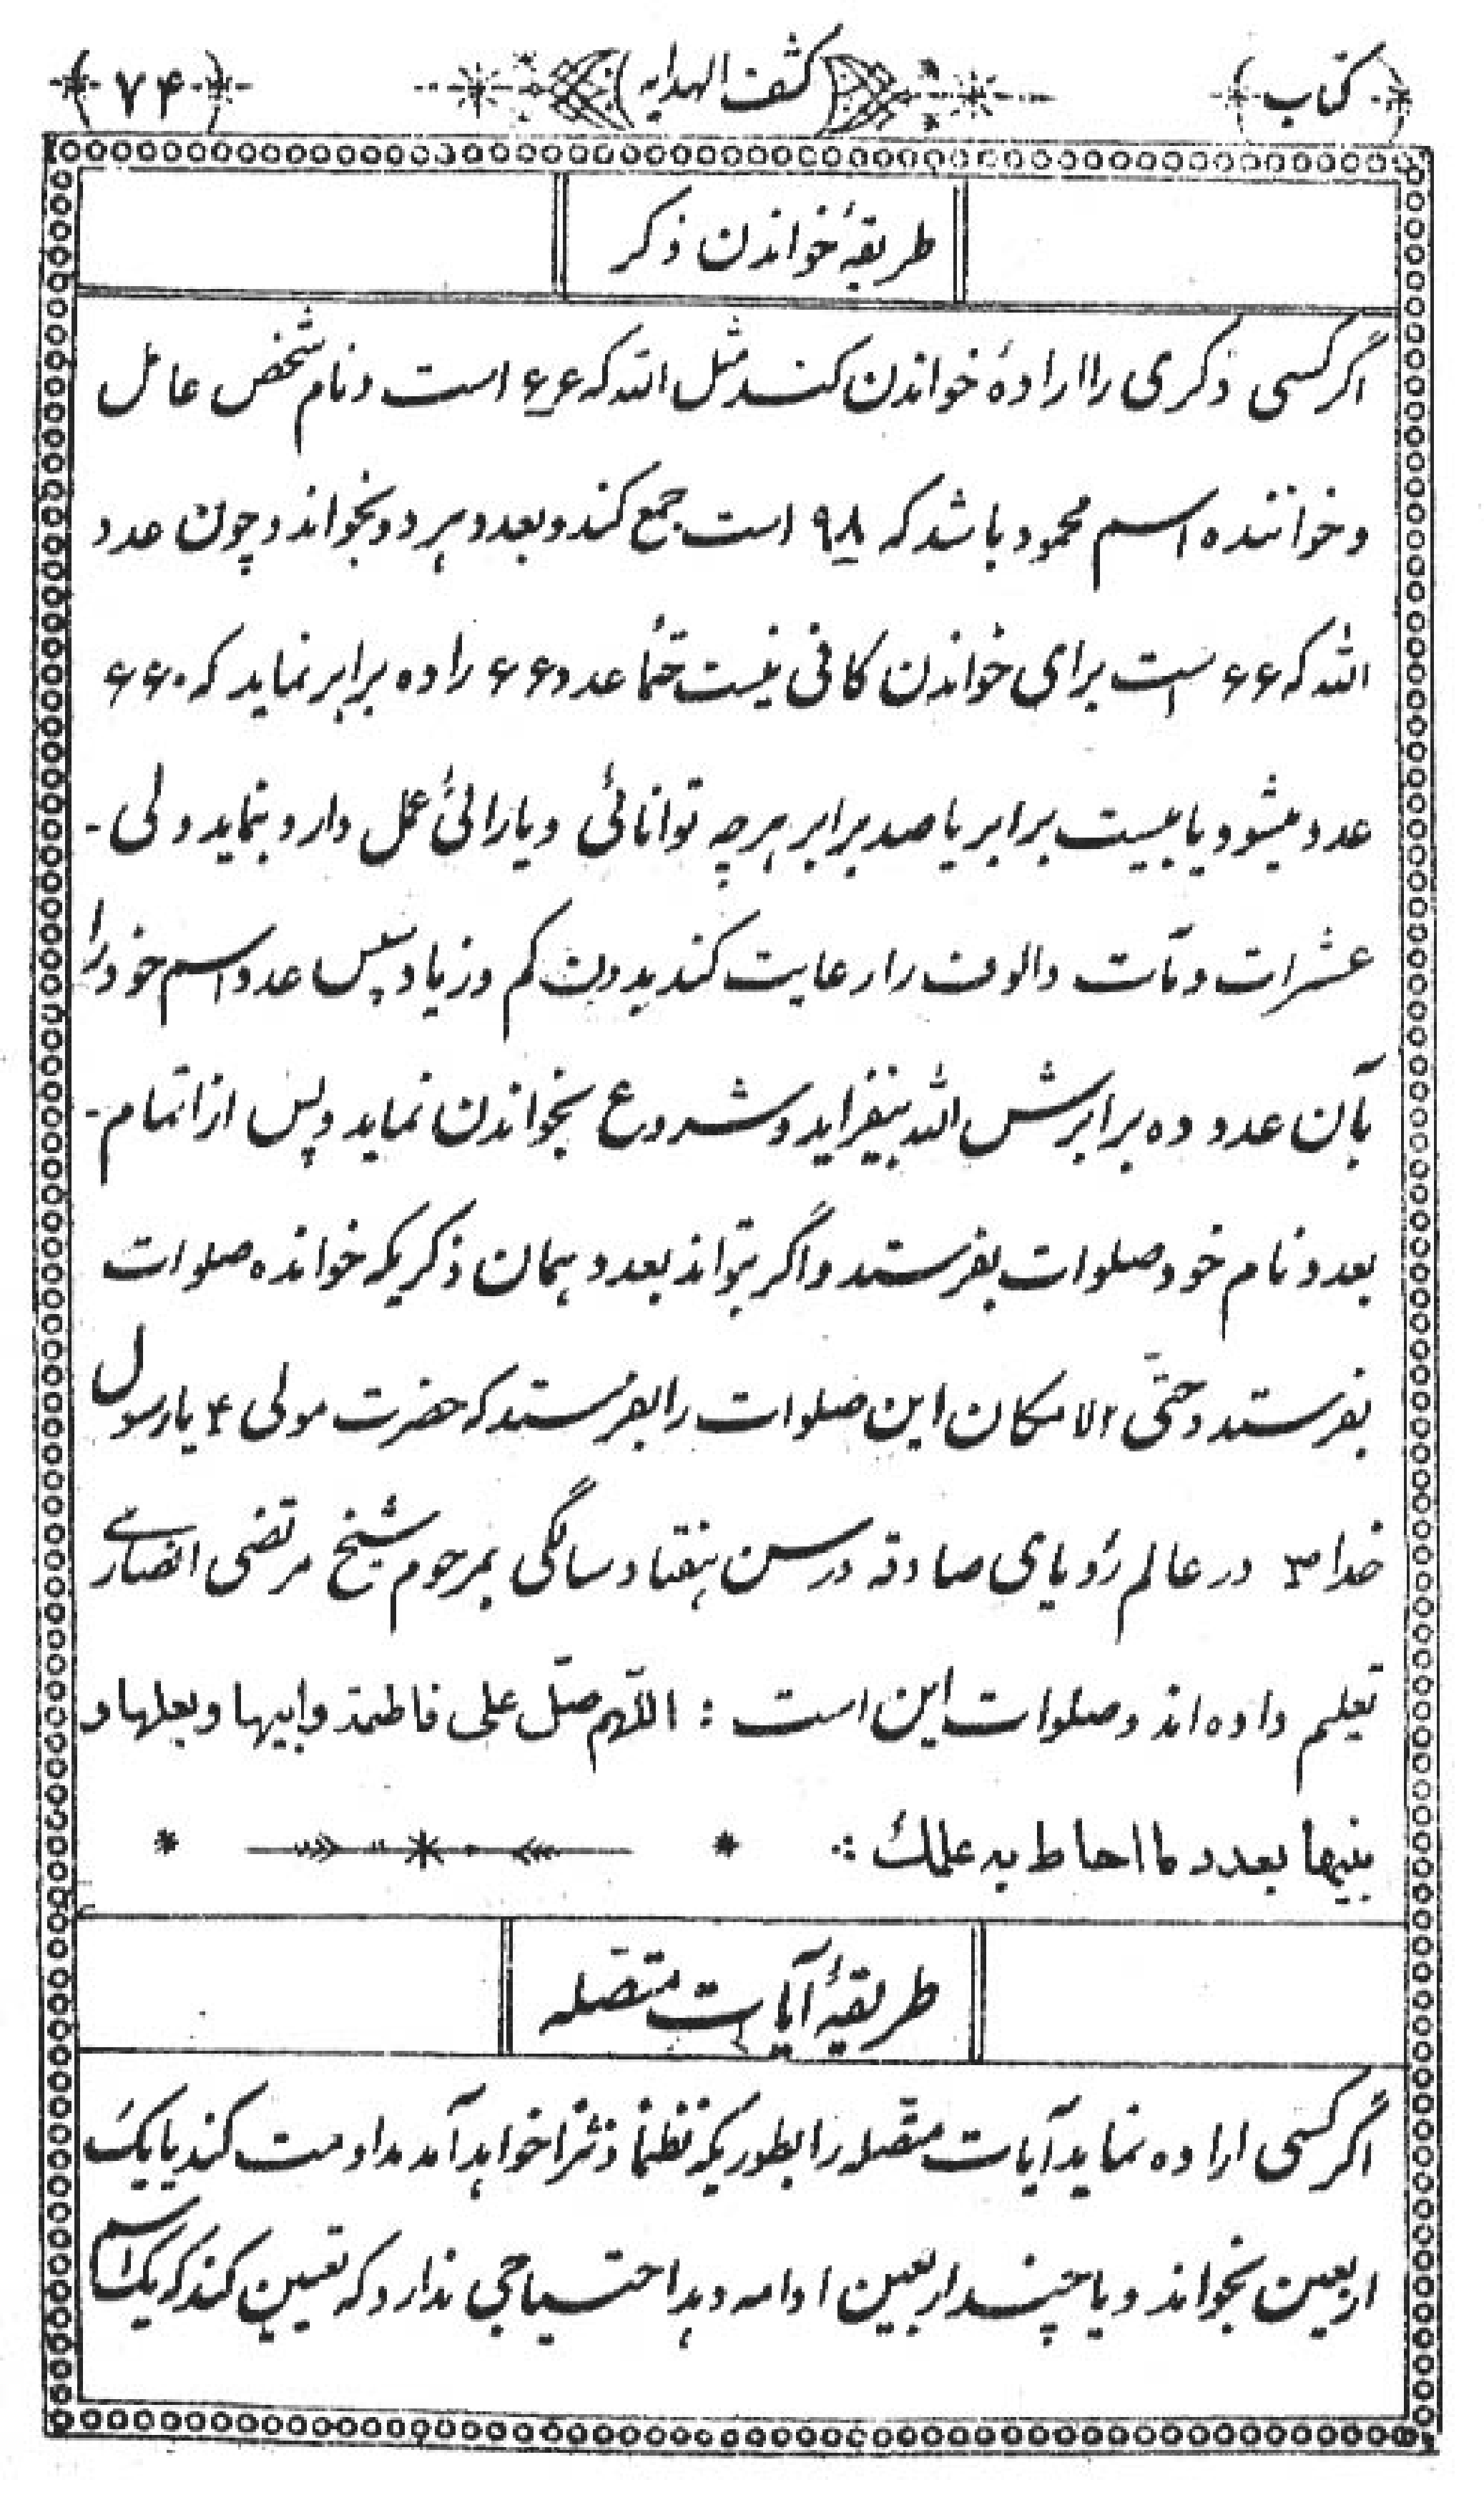 کتاب کشف الهدایه ۷۴
طریقهٔ خواندن ذکر
اگر کسی ذکری را ارادهٔ خواندن کند مثل الله که ۶۶ است و نام شخص عامل
و خواننده اسم محمود باشد که ۹۸ است جمع کند و بعدد هر دو بخواند و چون عدد
الله که ۶۶ است برای خواندن کافی نیست حتماً عدد ۶۶ را ده برابر نماید که ۶۶۰
عدد میشود یا بیست برابر یا صد برابر هر چه توانائی و یارائی عمل دارد بنماید ولی -
عشرات و مآت و الوف را رعایت کند بدون کم و زیاد سپس عدد اسم خود را
بآن عدد ده برابرش الله بیفزاید و شروع بخواندن نماید و پس از اتمام -
بعدد نام خود صلوات بفرستد و اگر بتواند بعدد همان ذکریکه خوانده صلوات
بفرستد و حتّی الامکان این صلوات را بفرستد که حضرت مولی ع یا رسول
خدا ص در عالم رؤیای صادقه در سن هفتاد سالگی بمرحوم شیخ مرتضی انصاری
تعلیم داده اند و صلوات این است : اللّهم صلّ علی فاطمة و ابیها و بعلها و
بنیها بعدد ما احاط به علمك ∴ * *
طریقهٔ آیات متّصله
اگر کسی اراده نماید آیات متّصله را بطوریکه نظماً و نثراً خواهد آمد مداومت کند یا یک
اربعین بخواند و یا چند اربعین ادامه دهد احتیاجی ندارد که تعیین کند که یک اسم